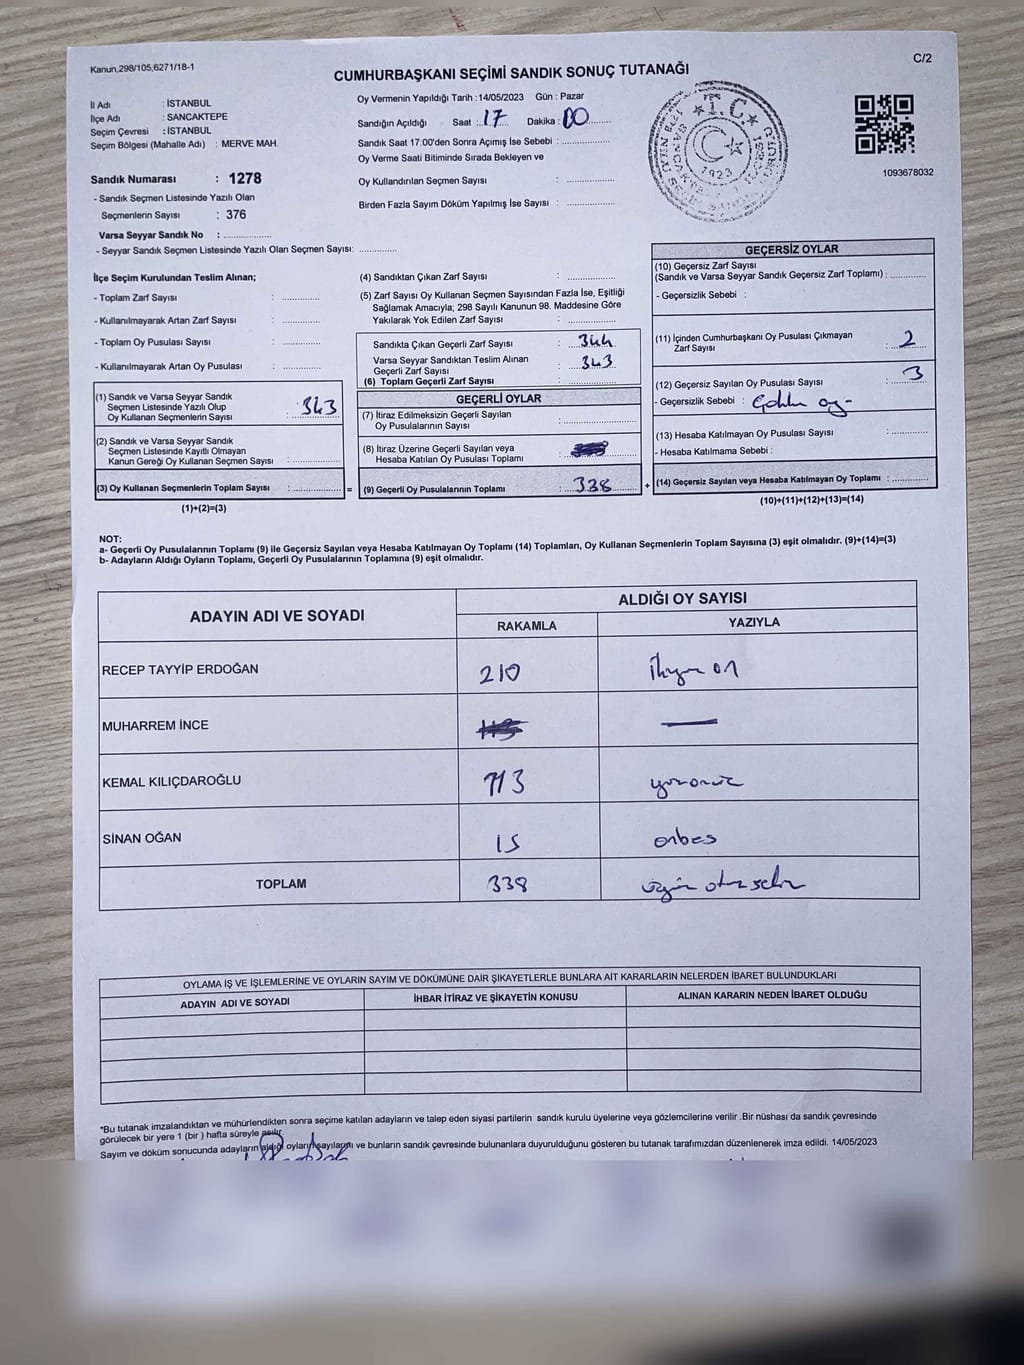 Kanun,298/105,6271/18-1
C/2
CUMHURBAŞKANI SEÇİMİ SANDIK SONUÇ TUTANAĞI
İl Adı : İSTANBUL
İlçe Adı : SANCAKTEPE
Seçim Çevresi : İSTANBUL
Seçim Bölgesi (Mahalle Adı) : MERVE MAH.
Sandık Numarası : 1278
- Sandık Seçmen Listesinde Yazılı Olan
Seçmenlerin Sayısı : 376
Varsa Seyyar Sandık No : ..............
- Seyyar Sandık Seçmen Listesinde Yazılı Olan Seçmen Sayısı: ............
Oy Vermenin Yapıldığı Tarih : 14/05/2023 Gün : Pazar
Sandığın Açıldığı Saat : 17 Dakika : 00
Sandık Saat 17.00'den Sonra Açımış İse Sebebi : ..............
Oy Verme Saati Bitiminde Sırada Bekleyen ve
Oy Kullandırılan Seçmen Sayısı : ..............
Birden Fazla Sayım Döküm Yapılmış İse Sayısı : ..............
T.C.
1923
1093678032
İlçe Seçim Kurulundan Teslim Alınan;
- Toplam Zarf Sayısı : ............
- Kullanılmayarak Artan Zarf Sayısı : ............
- Toplam Oy Pusulası Sayısı : ............
- Kullanılmayarak Artan Oy Pusulası : ............
(1) Sandık ve Varsa Seyyar Sandık
Seçmen Listesinde Yazılı Olup
Oy Kullanan Seçmenlerin Sayısı : 343
(2) Sandık ve Varsa Seyyar Sandık
Seçmen Listesinde Kayıtlı Olmayan
Kanun Gereği Oy Kullanan Seçmen Sayısı : ............
(3) Oy Kullanan Seçmenlerin Toplam Sayısı : ............ =
(1)+(2)=(3)
(4) Sandıktan Çıkan Zarf Sayısı : ............
(5) Zarf Sayısı Oy Kullanan Seçmen Sayısından Fazla İse, Eşitliği
Sağlamak Amacıyla; 298 Sayılı Kanunun 98. Maddesine Göre
Yakılarak Yok Edilen Zarf Sayısı : ............
Sandıkta Çıkan Geçerli Zarf Sayısı : 344
Varsa Seyyar Sandıktan Teslim Alınan
Geçerli Zarf Sayısı : 343
(6) Toplam Geçerli Zarf Sayısı : ............
GEÇERLİ OYLAR
(7) İtiraz Edilmeksizin Geçerli Sayılan
Oy Pusulalarının Sayısı : ............
(8) İtiraz Üzerine Geçerli Sayılan veya
Hesaba Katılan Oy Pusulası Toplamı :
(9) Geçerli Oy Pusulalarının Toplamı : 338 +
GEÇERSİZ OYLAR
(10) Geçersiz Zarf Sayısı
(Sandık ve Varsa Seyyar Sandık Geçersiz Zarf Toplamı) : ............
- Geçersizlik Sebebi :
(11) İçinden Cumhurbaşkanı Oy Pusulası Çıkmayan
Zarf Sayısı : 2
(12) Geçersiz Sayılan Oy Pusulası Sayısı : 3
- Geçersizlik Sebebi : oy
(13) Hesaba Katılmayan Oy Pusulası Sayısı : ............
- Hesaba Katılmama Sebebi :
(14) Geçersiz Sayılan veya Hesaba Katılmayan Oy Toplamı : ............
(10)+(11)+(12)+(13)=(14)
NOT:
a- Geçerli Oy Pusulalarının Toplamı (9) ile Geçersiz Sayılan veya Hesaba Katılmayan Oy Toplamı (14) Toplamları, Oy Kullanan Seçmenlerin Toplam Sayısına (3) eşit olmalıdır. (9)+(14)=(3)
b- Adayların Aldığı Oyların Toplamı, Geçerli Oy Pusulalarının Toplamına (9) eşit olmalıdır.
ADAYIN ADI VE SOYADI ALDIĞI OY SAYISI
RAKAMLA YAZIYLA
RECEP TAYYİP ERDOĞAN 210 ikiyüz on
MUHARREM İNCE —
KEMAL KILIÇDAROĞLU 113 yüzonüç
SİNAN OĞAN 15 onbeş
TOPLAM 338 üçyüz otuz sekiz
OYLAMA İŞ VE İŞLEMLERİNE VE OYLARIN SAYIM VE DÖKÜMÜNE DAİR ŞİKAYETLERLE BUNLARA AİT KARARLARIN NELERDEN İBARET BULUNDUKLARI
ADAYIN ADI VE SOYADI İHBAR İTİRAZ VE ŞİKAYETİN KONUSU ALINAN KARARIN NEDEN İBARET OLDUĞU
*Bu tutanak imzalandıktan ve mühürlendikten sonra seçime katılan adayların ve talep eden siyasi partilerin sandık kurulu üyelerine veya gözlemcilerine verilir .Bir nüshası da sandık çevresinde
görülecek bir yere 1 (bir ) hafta süreyle asılır.
Sayım ve döküm sonucunda adayların aldığı oyların sayılarını ve bunların sandık çevresinde bulunanlara duyurulduğunu gösteren bu tutanak tarafımızdan düzenlenerek imza edildi. 14/05/2023